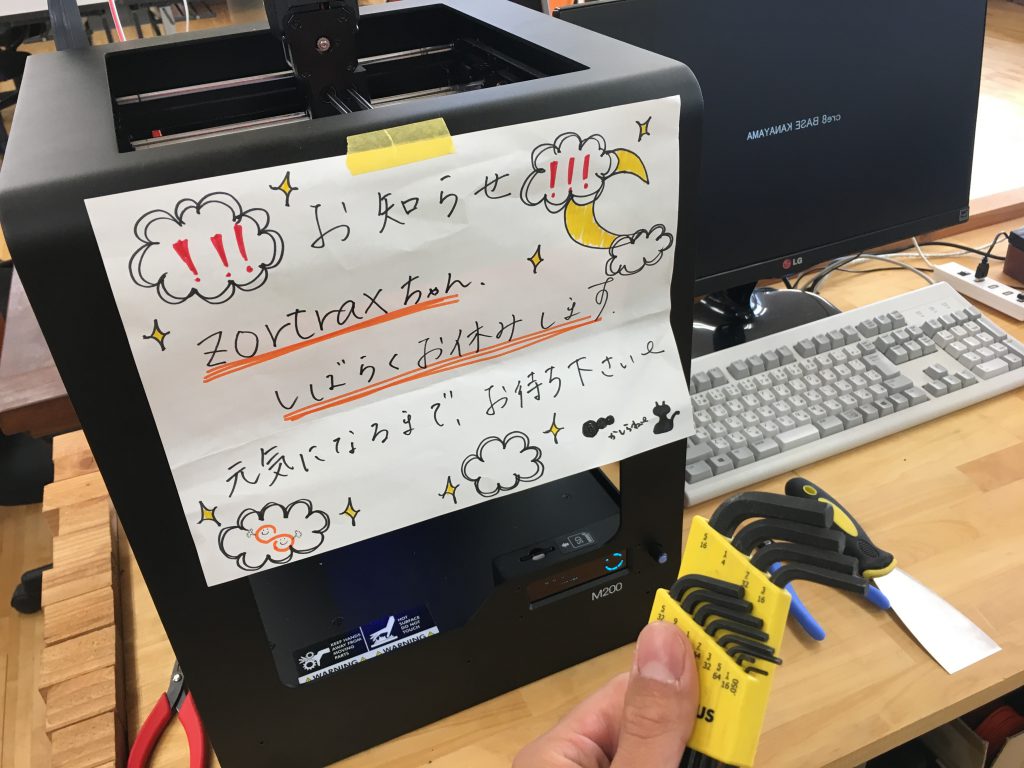 cre8 BASE KANAYAMA
LG
!!!
お知らせ
!!!
zortraxちゃん.
しばらくお休みします.
元気になるまで、お待ち下さい
M200
KEEP HANDS
AWAY FROM
MOVING
PARTS
HOT
SURFACE
DO NOT
TOUCH
WARNING
WARNING
5
16
1
4
7
32
3
16
5
32
9
1
7
3
32
5
64
1
16
.050
us